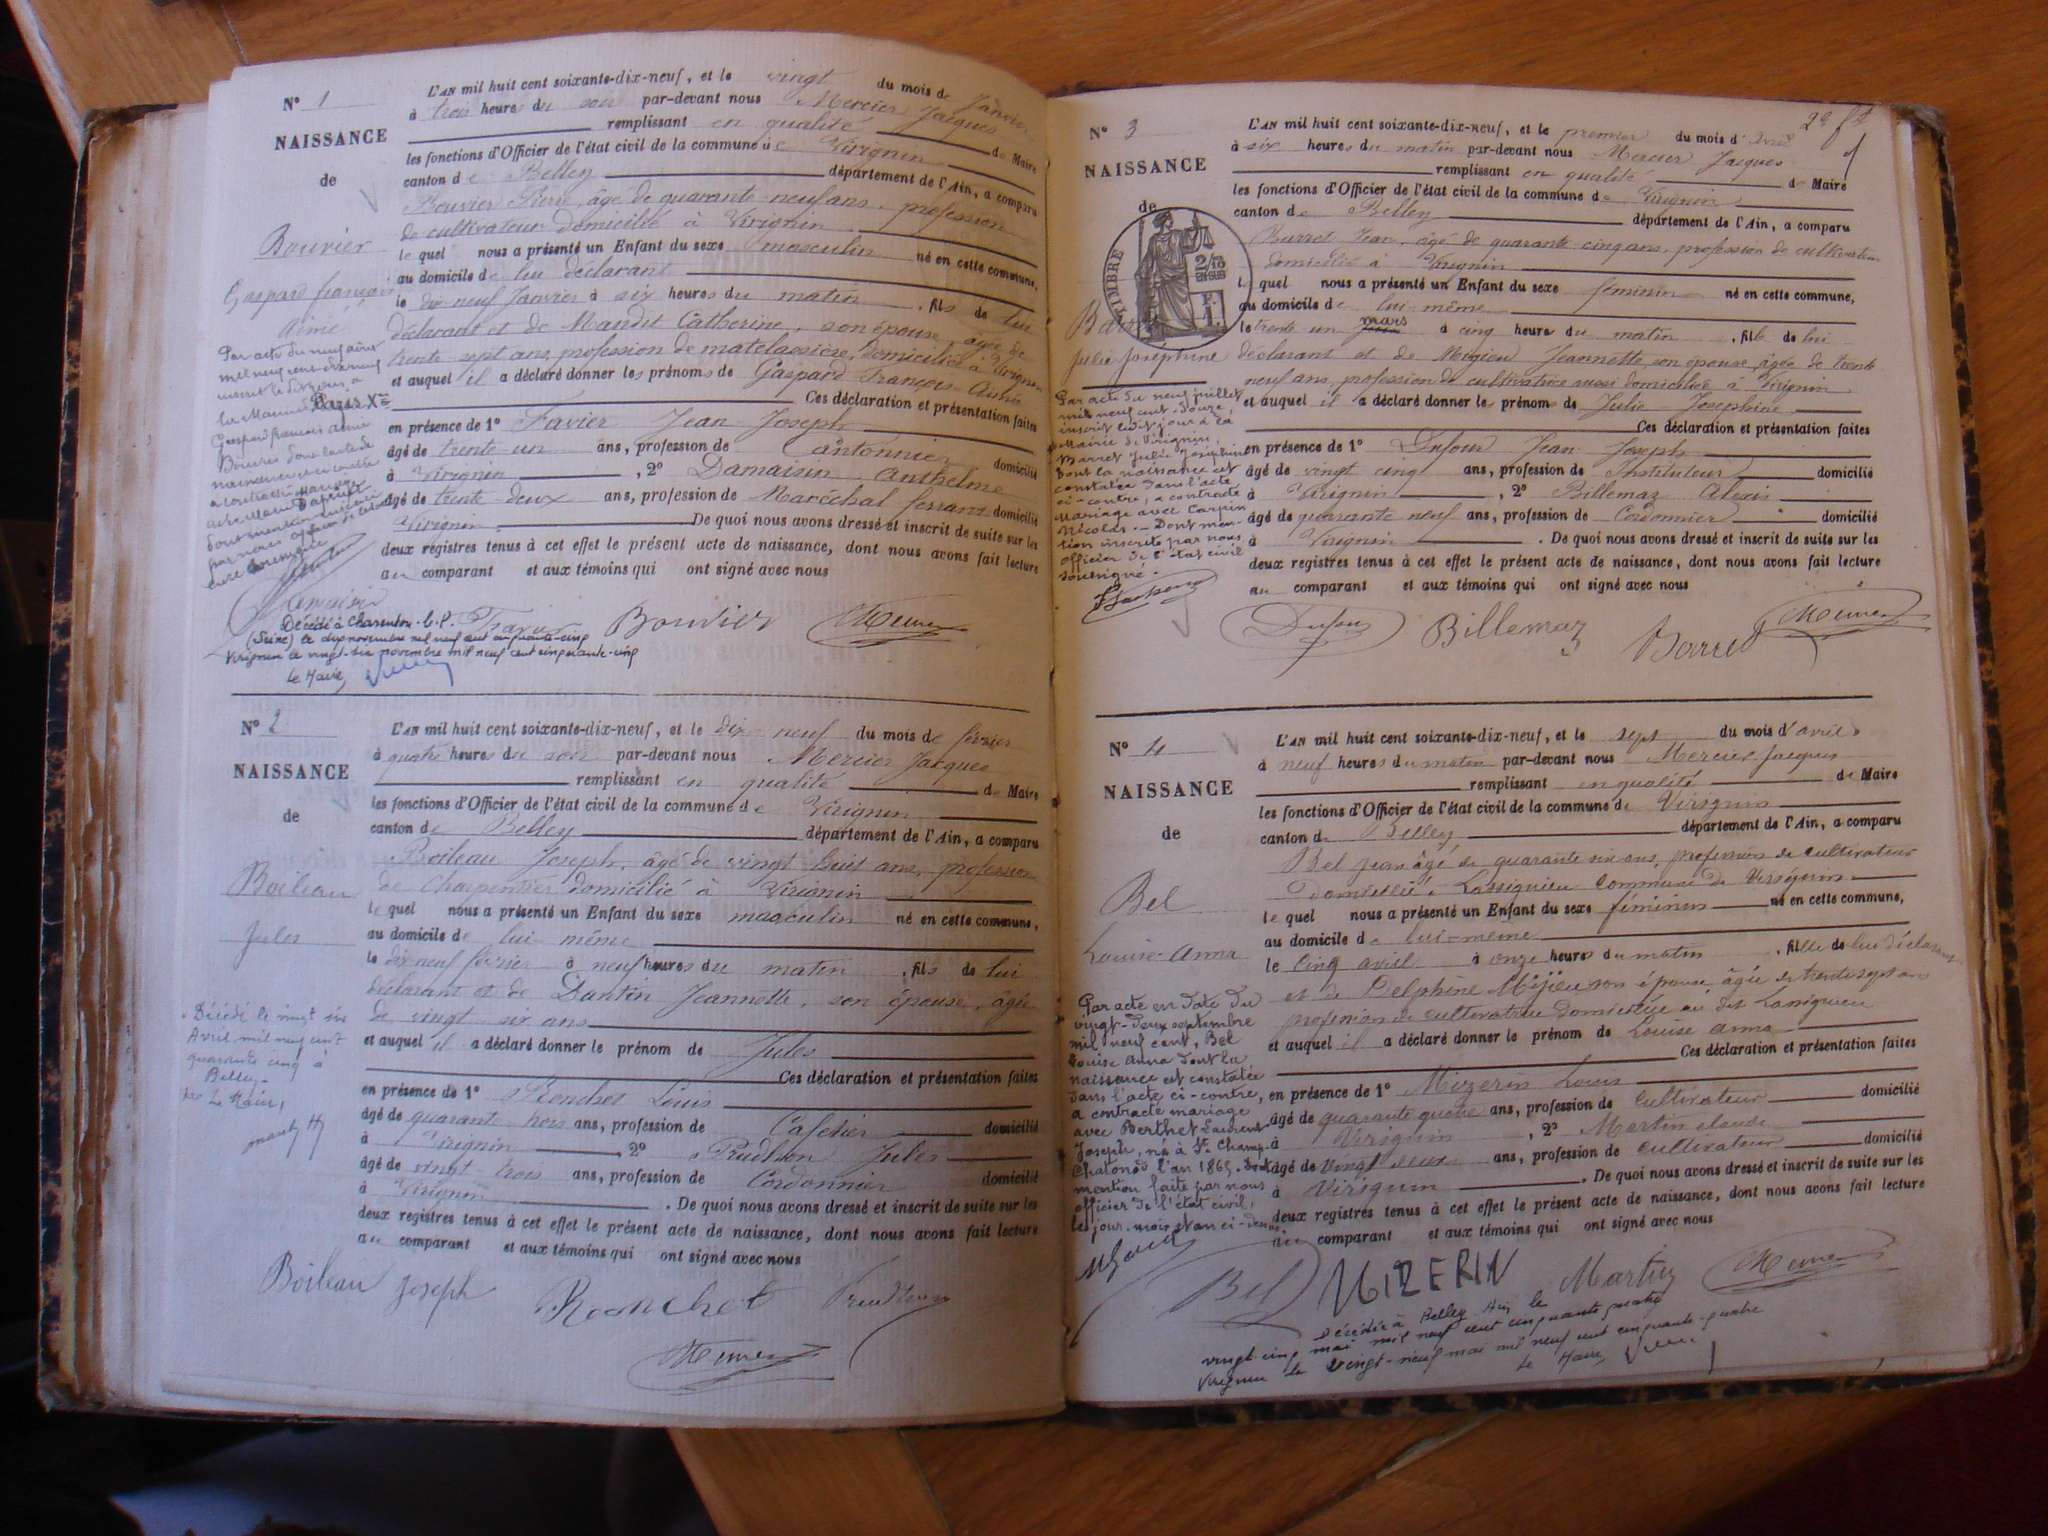 N° 1
NAISSANCE
de
Bouvier
Gaspard françois
Aimé
L'AN mil huit cent soixante-dix-neuf, et le vingt du mois de Janvier
à trois heures du soir par-devant nous Mercier Jacques
remplissant en qualité de Maire
les fonctions d'Officier de l'état civil de la commune de Virignin
canton de Belley département de l'Ain, a comparu
Bouvier Pierre, âgé de quarante neuf ans, profession
de cultivateur domicilié à Virignin
le quel nous a présenté un Enfant du sexe masculin né en cette commune,
au domicile de lui déclarant
le dix neuf Janvier à six heures du matin, fils de lui
déclarant et de Mandit Catherine, son épouse, âgée de
trente sept ans, profession de matelassière, domiciliée à Virignin
et auquel il a déclaré donner les prénoms de Gaspard François Aimé
Ces déclaration et présentation faites
en présence de 1° Favier Jean Joseph
âgé de trente un ans, profession de Cantonnier domicilié
à Virignin, 2° Damaisin Anthelme
âgé de trente deux ans, profession de Maréchal ferrant domicilié
Virignin De quoi nous avons dressé et inscrit de suite sur les
deux registres tenus à cet effet le présent acte de naissance, dont nous avons fait lecture
au comparant et aux témoins qui ont signé avec nous
Par acte du neuf
mil neuf cent
inscrit le dit jour à
la Mairie Paris Xme
Gaspard francois aimé
Bouvier dont l'acte de
naissance est ci contre
a contracté mariage
Bouvier
Décédé à Charenton-l.P.
(Seine) le dix novembre mil neuf cent cinquante-cinq
Virignin le vingt-six novembre mil neuf cent cinquante-cinq
Le Maire,
N° 2
NAISSANCE
de
Boileau
Jules
L'AN mil huit cent soixante-dix-neuf, et le dix neuf du mois de février
à quatre heures du soir par-devant nous Mercier Jacques
remplissant en qualité de Maire
les fonctions d'Officier de l'état civil de la commune de Virignin
canton de Belley département de l'Ain, a comparu
Boileau Joseph, âgé de vingt huit ans, profession
de charpentier domicilié à Virignin
le quel nous a présenté un Enfant du sexe masculin né en cette commune,
au domicile de lui même
le dix neuf février à neuf heures du matin, fils de lui
déclarant et de Dantin Jeannette, son épouse, âgée
de vingt six ans
et auquel il a déclaré donner le prénom de Jules
Ces déclaration et présentation faites
en présence de 1° Ronchet Louis
âgé de quarante trois ans, profession de Cafetier domicilié
à Virignin, 2° Prudhon Jules
âgé de vingt trois ans, profession de Cordonnier domicilié
à Virignin. De quoi nous avons dressé et inscrit de suite sur les
deux registres tenus à cet effet le présent acte de naissance, dont nous avons fait lecture
au comparant et aux témoins qui ont signé avec nous
Décédé le vingt six
Avril mil neuf cent
quarante cinq à
Belley.
Le Maire,
Boileau Joseph Ronchet Prudhon
N° 3
NAISSANCE
de
TIMBRE
2/10
EN SUS
Julie Joséphine
L'AN mil huit cent soixante-dix-neuf, et le premier du mois d'Avril
à six heures du matin par-devant nous Mercier Jacques
remplissant en qualité de Maire
les fonctions d'Officier de l'état civil de la commune de Virignin
canton de Belley département de l'Ain, a comparu
Barret Jean, âgé de quarante cinq ans, profession de cultivateur
domicilié à Virignin
le quel nous a présenté un Enfant du sexe féminin né en cette commune,
au domicile de lui-même
le trente un mars à cinq heures du matin, fille de lui
déclarant et de Mugieu Jeannette, son épouse, âgée de trente
neuf ans, profession de cultivatrice aussi domiciliée à Virignin
et auquel il a déclaré donner les prénoms de Julie Josephine
Ces déclaration et présentation faites
en présence de 1° Dufour Jean Joseph
âgé de vingt cinq ans, profession de Instituteur domicilié
à Virignin, 2° Billemaz Alexis
âgé de quarante neuf ans, profession de Cordonnier domicilié
à Virignin. De quoi nous avons dressé et inscrit de suite sur les
deux registres tenus à cet effet le présent acte de naissance, dont nous avons fait lecture
au comparant et aux témoins qui ont signé avec nous
Par acte du neuf juillet
mil neuf cent douze,
inscrit le dit jour à la
Mairie de Virignin,
Barret Julie Joséphine
dont la naissance est
constatée dans l'acte
ci-contre, a contracté
Mariage avec Carpin
Nicolas. - Dont men-
tion inscrite par nous
officier de l'état civil
soussigné.
Dufour Billemaz Barret
N° 4
NAISSANCE
de
Bel
Louise Anna
L'AN mil huit cent soixante-dix-neuf, et le sept du mois d'avril
à neuf heures du matin par-devant nous Mercier Jacques
remplissant en qualité de Maire
les fonctions d'Officier de l'état civil de la commune de Virignin
canton de Belley département de l'Ain, a comparu
Bel Jean âgé de quarante six ans, profession de cultivateur
domicilié à Lassignieu commune de Virignin
le quel nous a présenté un Enfant du sexe féminin né en cette commune,
au domicile de lui-même
le cinq avril à onze heures du matin, fille de lui déclarant
et de Delphine Mijieu son épouse, âgée de trente sept ans
profession de cultivatrice domiciliée au dit Lassignieu
et auquel il a déclaré donner le prénom de Louise Anna
Ces déclaration et présentation faites
en présence de 1° Mizerin Louis domicilié
âgé de quarante quatre ans, profession de cultivateur
à Virignin, 2° Martin claude
âgé de vingt deux ans, profession de cultivateur domicilié
à Virignin. De quoi nous avons dressé et inscrit de suite sur les
deux registres tenus à cet effet le présent acte de naissance, dont nous avons fait lecture
au comparant et aux témoins qui ont signé avec nous
Par acte en date du
vingt-deux septembre
mil neuf cent, Bel
Louise Anna dont la
naissance est constatée
dans l'acte ci-contre,
a contracté mariage
avec Berthet Laurent
Joseph, né à St. Champ-
Chatonod l'an 1865. Dont
mention faite par nous
officier de l'état civil,
les jour, mois et an ci-dessus.
Bel MIZERIN Martin
Décédée à Belley Ain le
vingt-cinq mai mil neuf cent cinquante quatre
Virignin le vingt-neuf mai mil neuf cent cinquante-quatre
Le Maire,